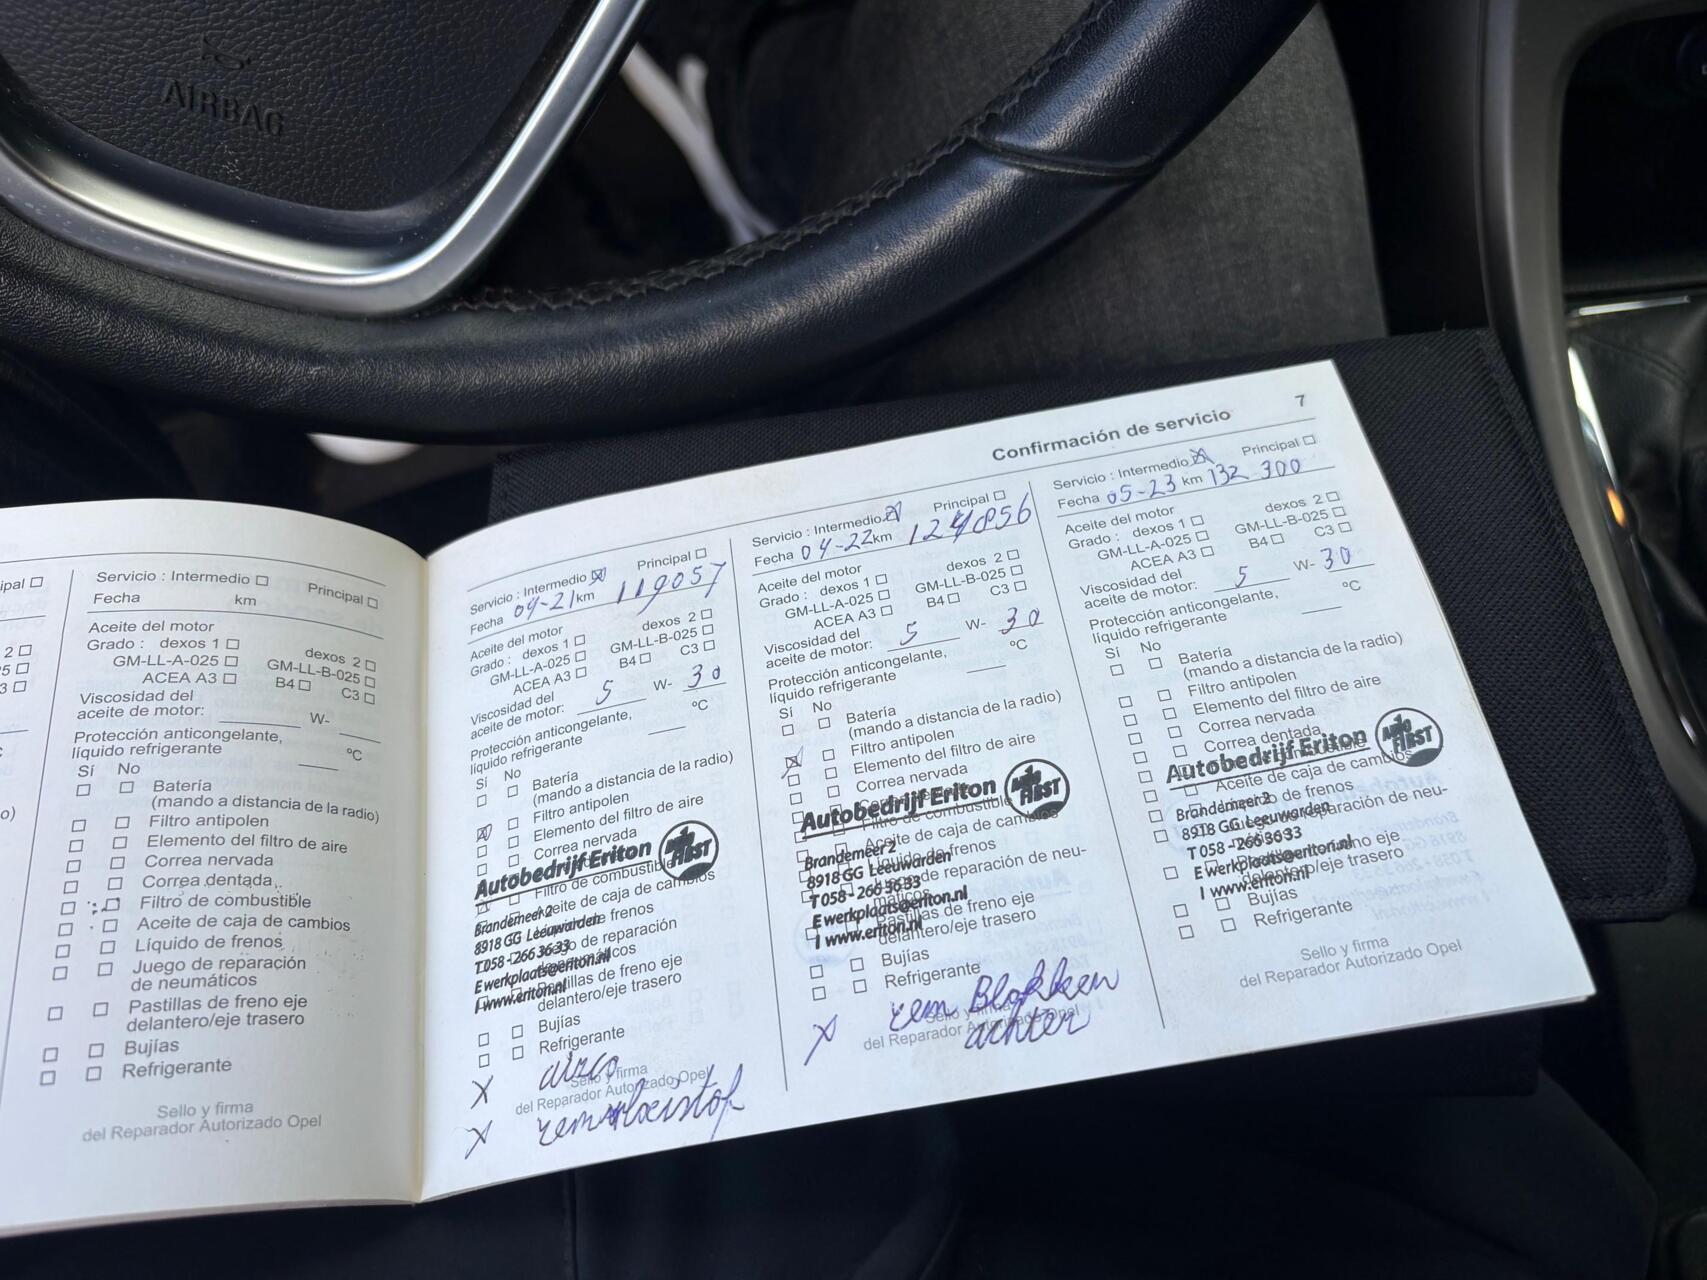 AIRBAG
Confirmación de servicio 7
ipal
2
25
3
°C
o)
Servicio : Intermedio Principal
Fecha km
Aceite del motor
Grado : dexos 1 dexos 2
GM-LL-A-025 GM-LL-B-025
ACEA A3 B4 C3
Viscosidad del
aceite de motor: W-
Protección anticongelante,
líquido refrigerante °C
Sí No
Batería
(mando a distancia de la radio)
Filtro antipolen
Elemento del filtro de aire
Correa nervada
Correa dentada
Filtro de combustible
Aceite de caja de cambios
Líquido de frenos
Juego de reparación
de neumáticos
Pastillas de freno eje
delantero/eje trasero
Bujías
Refrigerante
Sello y firma
del Reparador Autorizado Opel
Servicio : Intermedio Principal
Fecha 04-21 km 119057
Aceite del motor
Grado : dexos 1 dexos 2
GM-LL-A-025 GM-LL-B-025
ACEA A3 B4 C3
Viscosidad del
aceite de motor: 5 W- 30
Protección anticongelante,
líquido refrigerante °C
Sí No
Batería
(mando a distancia de la radio)
Filtro antipolen
Elemento del filtro de aire
Correa nervada
Autobedrijf Eriton
Auto FIRST
Filtro de combustible
Aceite de caja de cambios
Brandemeer 2
8918 GG Leeuwarden
T 058 - 266 36 33
E werkplaats@eriton.nl
I www.eriton.nl
Líquido de frenos
Juego de reparación
de neumáticos
Pastillas de freno eje
delantero/eje trasero
Bujías
Refrigerante
X airco
Sello y firma
del Reparador Autorizado Opel
X remvloeistof
Servicio : Intermedio Principal
Fecha 04-22 km
Aceite del motor
Grado : dexos 1 dexos 2
GM-LL-A-025 GM-LL-B-025
ACEA A3 B4 C3
Viscosidad del
aceite de motor: 5 W- 30
Protección anticongelante,
líquido refrigerante °C
Sí No
Batería
(mando a distancia de la radio)
Filtro antipolen
Elemento del filtro de aire
Correa nervada
Autobedrijf Eriton
Auto FIRST
Filtro de combustible
Aceite de caja de cambios
Brandemeer 2
8918 GG Leeuwarden
T 058 - 266 36 33
E werkplaats@eriton.nl
I www.eriton.nl
Líquido de frenos
Juego de reparación de neu-
máticos
Pastillas de freno eje
delantero/eje trasero
Bujías
Refrigerante
X rem Blokken
achter
Sello y firma
del Reparador Autorizado Opel
Servicio : Intermedio Principal
Fecha 05-23 km 132 300
Aceite del motor
Grado : dexos 1 dexos 2
GM-LL-A-025 GM-LL-B-025
ACEA A3 B4 C3
Viscosidad del
aceite de motor: 5 W- 30
Protección anticongelante,
líquido refrigerante °C
Sí No
Batería
(mando a distancia de la radio)
Filtro antipolen
Elemento del filtro de aire
Correa nervada
Correa dentada
Autobedrijf Eriton
Auto FIRST
Aceite de caja de cambios
Brandemeer 2
8918 GG Leeuwarden
T 058 - 266 36 33
E werkplaats@eriton.nl
I www.eriton.nl
Líquido de frenos
Juego de reparación de neu-
Pastillas de freno eje
delantero/eje trasero
Bujías
Refrigerante
Sello y firma
del Reparador Autorizado Opel